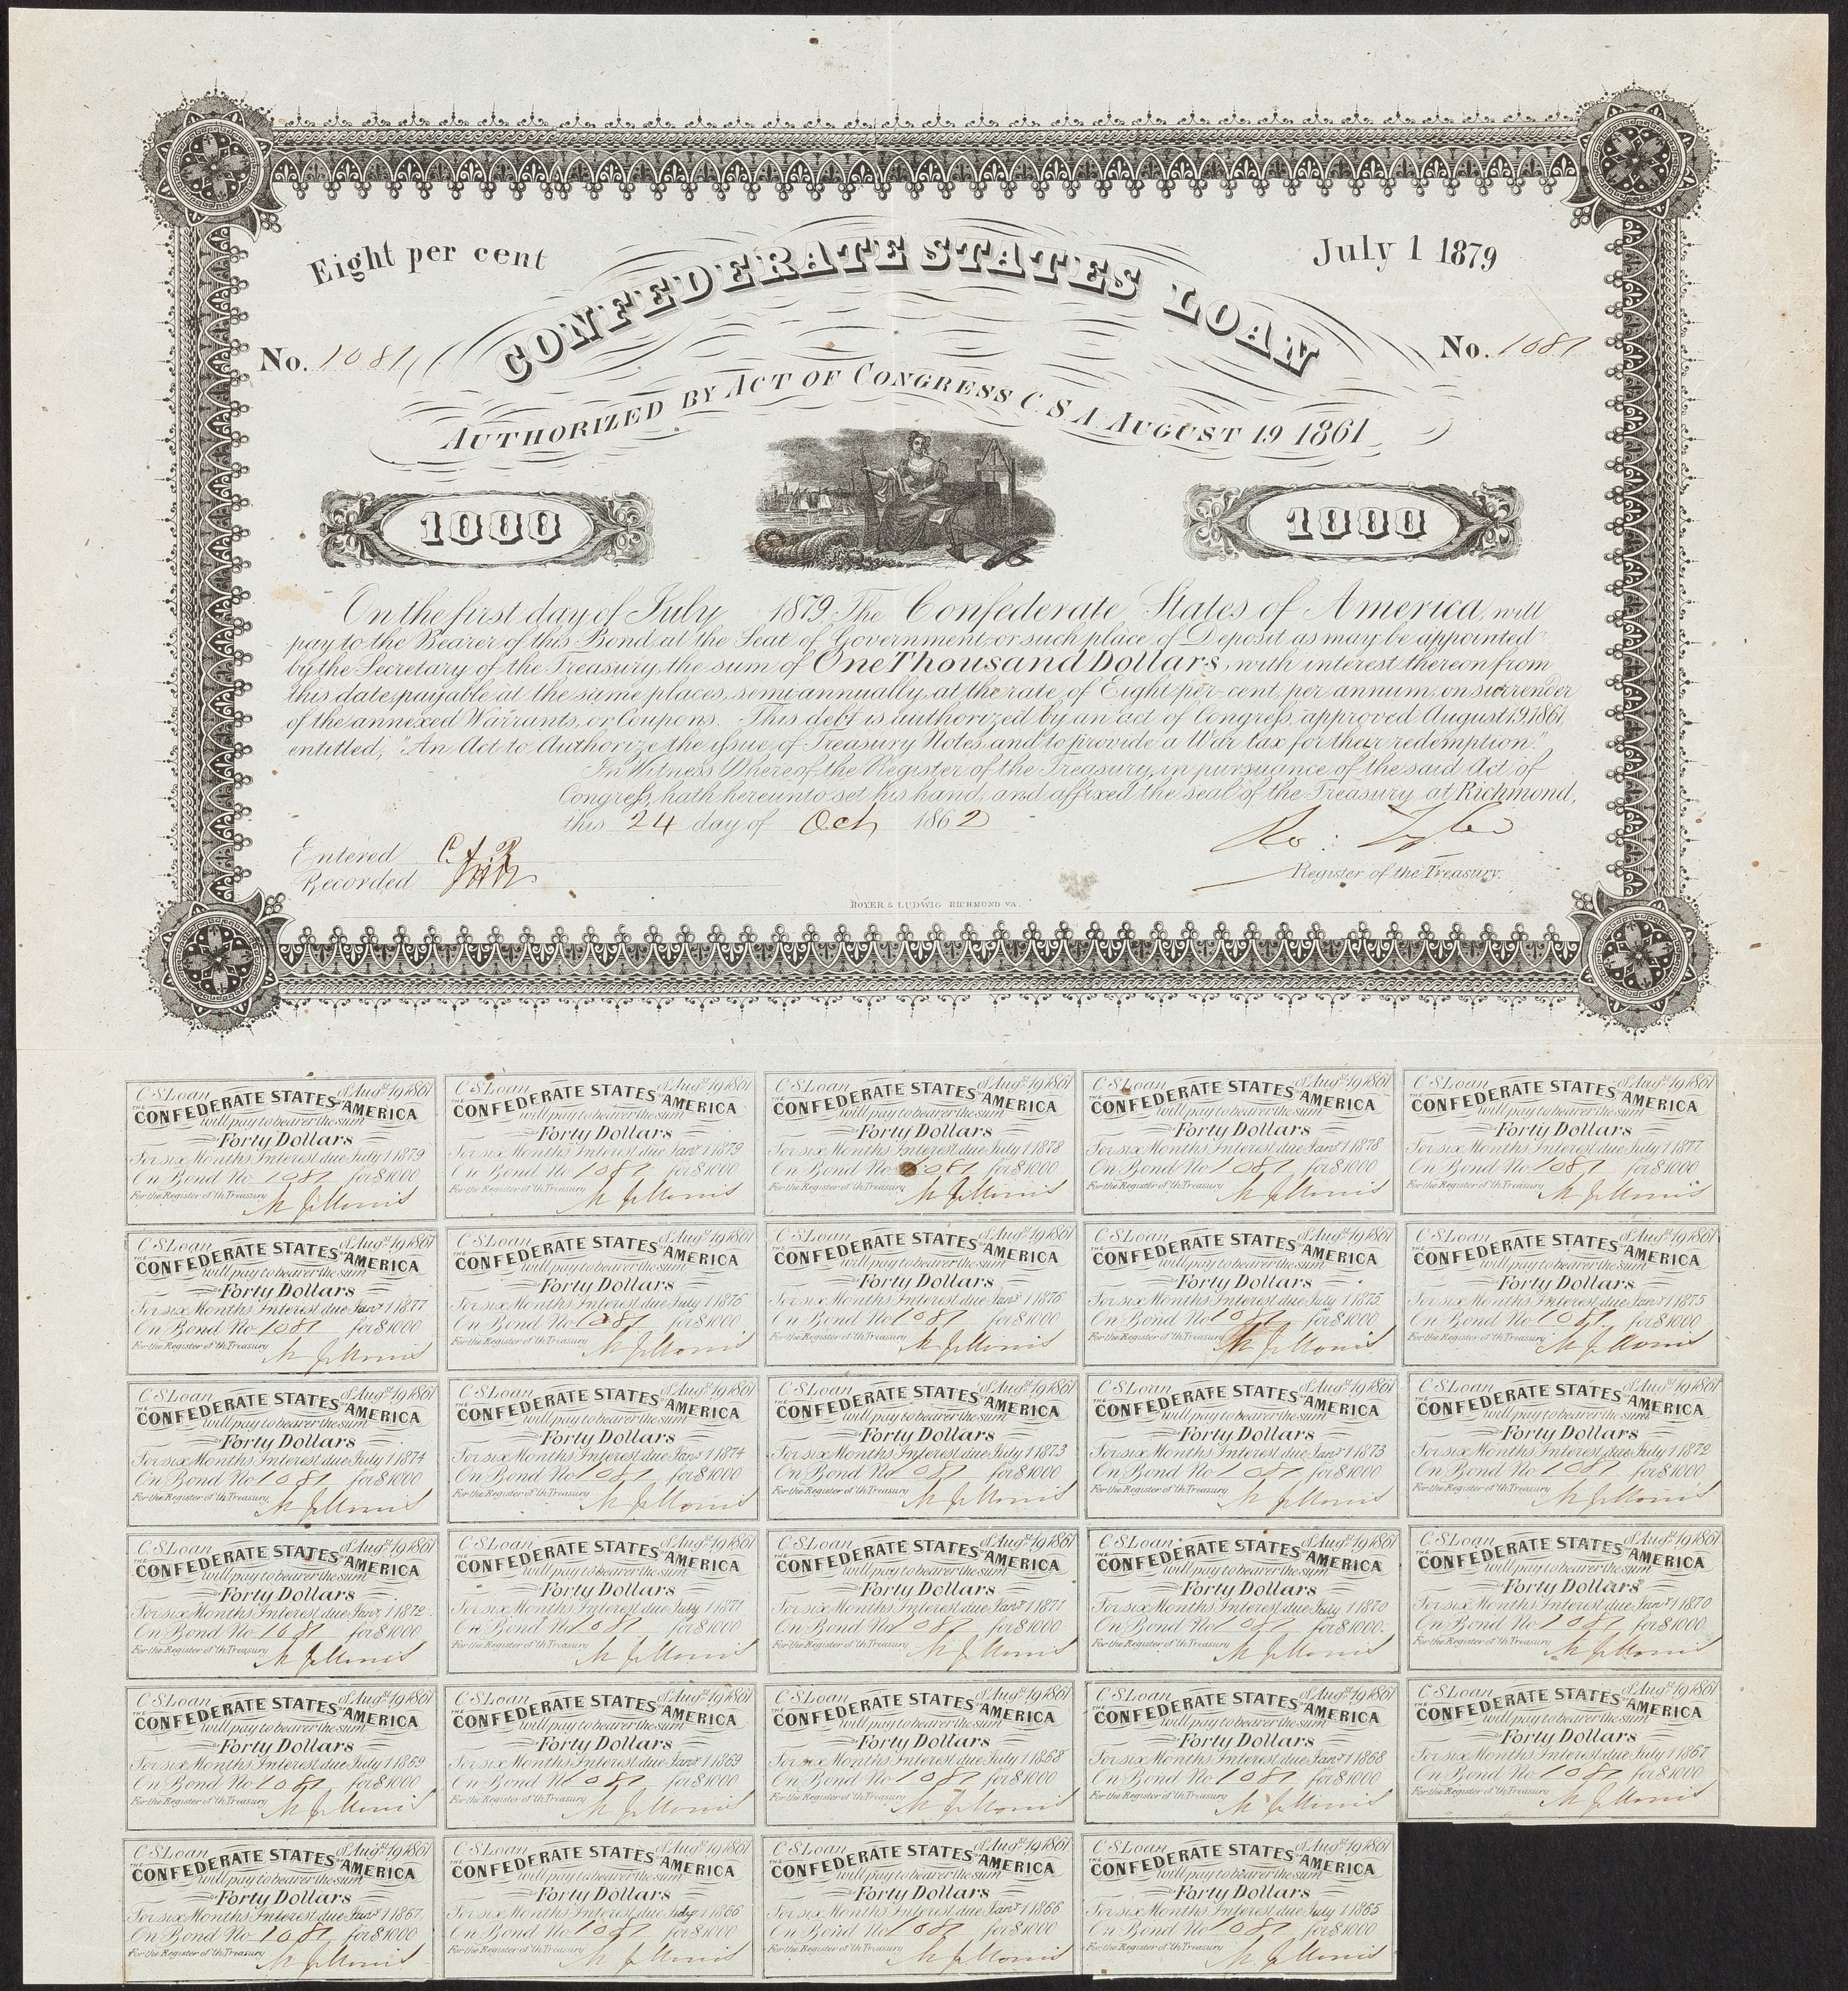 Eight per cent
July 1 1879
CONFEDERATE STATES LOAN
No. 1081
No. 1081
AUTHORIZED BY ACT OF CONGRESS C. S. A. AUGUST 19 1861
1000
1000
On the first day of July 1879 The Confederate States of America, will
pay to the Bearer of this Bond, at the Seat of Government, or such place of Deposit as may be appointed
by the Secretary of the Treasury, the sum of One Thousand Dollars, with interest thereon from
this date, payable at the same places, semi annually, at the rate of Eight per-cent, per annum, on surrender
of the annexed Warrants, or Coupons. This debt is authorized by an act of Congress, approved August 19, 1861,
entitled, "An Act to Authorize the issue of Treasury Notes, and to provide a War tax for their redemption."
In Witness Whereof the Register of the Treasury, in pursuance of the said Act of
Congress, hath hereunto set his hand, and affixed the seal of the Treasury at Richmond,
this 24 day of Oct 1862
Ro: Tyler
Entered
Recorded
Register of the Treasury.
HOYER & LUDWIG RICHMOND VA.
C S Loan of Augst 19 1861
THE CONFEDERATE STATES OF AMERICA
will pay to bearer the sum
of Forty Dollars
For six Months Interest due July 1 1879
On Bond No 1081 for $1000
For the Register of th Treasury
C S Loan of Augst 19 1861
THE CONFEDERATE STATES OF AMERICA
will pay to bearer the sum
of Forty Dollars
For six Months Interest due Jany 1 1879
On Bond No 1081 for $1000
For the Register of th Treasury
C S Loan of Augst 19 1861
THE CONFEDERATE STATES OF AMERICA
will pay to bearer the sum
of Forty Dollars
For six Months Interest due July 1 1878
On Bond No 1081 for $1000
For the Register of th Treasury
C S Loan of Augst 19 1861
THE CONFEDERATE STATES OF AMERICA
will pay to bearer the sum
of Forty Dollars
For six Months Interest due Jany 1 1878
On Bond No 1081 for $1000
For the Register of th Treasury
C S Loan of Augst 19 1861
THE CONFEDERATE STATES OF AMERICA
will pay to bearer the sum
of Forty Dollars
For six Months Interest due July 1 1877
On Bond No 1081 for $1000
For the Register of th Treasury
C S Loan of Augst 19 1861
THE CONFEDERATE STATES OF AMERICA
will pay to bearer the sum
of Forty Dollars
For six Months Interest due Jany 1 1877
On Bond No 1081 for $1000
For the Register of th Treasury
C S Loan of Augst 19 1861
THE CONFEDERATE STATES OF AMERICA
will pay to bearer the sum
of Forty Dollars
For six Months Interest due July 1 1876
On Bond No 1081 for $1000
For the Register of th Treasury
C S Loan of Augst 19 1861
THE CONFEDERATE STATES OF AMERICA
will pay to bearer the sum
of Forty Dollars
For six Months Interest due Jany 1 1876
On Bond No 1081 for $1000
For the Register of th Treasury
C S Loan of Augst 19 1861
THE CONFEDERATE STATES OF AMERICA
will pay to bearer the sum
of Forty Dollars
For six Months Interest due July 1 1875
On Bond No 1081 for $1000
For the Register of th Treasury
C S Loan of Augst 19 1861
THE CONFEDERATE STATES OF AMERICA
will pay to bearer the sum
of Forty Dollars
For six Months Interest due Jany 1 1875
On Bond No 1081 for $1000
For the Register of th Treasury
C S Loan of Augst 19 1861
THE CONFEDERATE STATES OF AMERICA
will pay to bearer the sum
of Forty Dollars
For six Months Interest due July 1 1874
On Bond No 1081 for $1000
For the Register of th Treasury
C S Loan of Augst 19 1861
THE CONFEDERATE STATES OF AMERICA
will pay to bearer the sum
of Forty Dollars
For six Months Interest due Jany 1 1874
On Bond No 1081 for $1000
For the Register of th Treasury
C S Loan of Augst 19 1861
THE CONFEDERATE STATES OF AMERICA
will pay to bearer the sum
of Forty Dollars
For six Months Interest due July 1 1873
On Bond No 1081 for $1000
For the Register of th Treasury
C S Loan of Augst 19 1861
THE CONFEDERATE STATES OF AMERICA
will pay to bearer the sum
of Forty Dollars
For six Months Interest due Jany 1 1873
On Bond No 1081 for $1000
For the Register of th Treasury
C S Loan of Augst 19 1861
THE CONFEDERATE STATES OF AMERICA
will pay to bearer the sum
of Forty Dollars
For six Months Interest due July 1 1872
On Bond No 1081 for $1000
For the Register of th Treasury
C S Loan of Augst 19 1861
THE CONFEDERATE STATES OF AMERICA
will pay to bearer the sum
of Forty Dollars
For six Months Interest due Jany 1 1872
On Bond No 1081 for $1000
For the Register of th Treasury
C S Loan of Augst 19 1861
THE CONFEDERATE STATES OF AMERICA
will pay to bearer the sum
of Forty Dollars
For six Months Interest due July 1 1871
On Bond No 1081 for $1000
For the Register of th Treasury
C S Loan of Augst 19 1861
THE CONFEDERATE STATES OF AMERICA
will pay to bearer the sum
of Forty Dollars
For six Months Interest due Jany 1 1871
On Bond No 1081 for $1000
For the Register of th Treasury
C S Loan of Augst 19 1861
THE CONFEDERATE STATES OF AMERICA
will pay to bearer the sum
of Forty Dollars
For six Months Interest due July 1 1870
On Bond No 1081 for $1000
For the Register of th Treasury
C S Loan of Augst 19 1861
THE CONFEDERATE STATES OF AMERICA
will pay to bearer the sum
of Forty Dollars
For six Months Interest due Jany 1 1870
On Bond No 1081 for $1000
For the Register of th Treasury
C S Loan of Augst 19 1861
THE CONFEDERATE STATES OF AMERICA
will pay to bearer the sum
of Forty Dollars
For six Months Interest due July 1 1869
On Bond No 1081 for $1000
For the Register of th Treasury
C S Loan of Augst 19 1861
THE CONFEDERATE STATES OF AMERICA
will pay to bearer the sum
of Forty Dollars
For six Months Interest due Jany 1 1869
On Bond No 1081 for $1000
For the Register of th Treasury
C S Loan of Augst 19 1861
THE CONFEDERATE STATES OF AMERICA
will pay to bearer the sum
of Forty Dollars
For six Months Interest due July 1 1868
On Bond No 1081 for $1000
For the Register of th Treasury
C S Loan of Augst 19 1861
THE CONFEDERATE STATES OF AMERICA
will pay to bearer the sum
of Forty Dollars
For six Months Interest due Jany 1 1868
On Bond No 1081 for $1000
For the Register of th Treasury
C S Loan of Augst 19 1861
THE CONFEDERATE STATES OF AMERICA
will pay to bearer the sum
of Forty Dollars
For six Months Interest due July 1 1867
On Bond No 1081 for $1000
For the Register of th Treasury
C S Loan of Augst 19 1861
THE CONFEDERATE STATES OF AMERICA
will pay to bearer the sum
of Forty Dollars
For six Months Interest due Jany 1 1867
On Bond No 1081 for $1000
For the Register of th Treasury
C S Loan of Augst 19 1861
THE CONFEDERATE STATES OF AMERICA
will pay to bearer the sum
of Forty Dollars
For six Months Interest due July 1 1866
On Bond No 1081 for $1000
For the Register of th Treasury
C S Loan of Augst 19 1861
THE CONFEDERATE STATES OF AMERICA
will pay to bearer the sum
of Forty Dollars
For six Months Interest due Jany 1 1866
On Bond No 1081 for $1000
For the Register of th Treasury
C S Loan of Augst 19 1861
THE CONFEDERATE STATES OF AMERICA
will pay to bearer the sum
of Forty Dollars
For six Months Interest due July 1 1865
On Bond No 1081 for $1000
For the Register of th Treasury